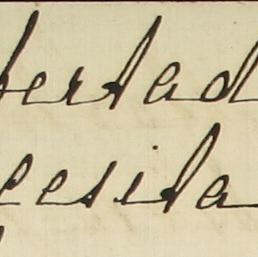 bertad
cesita